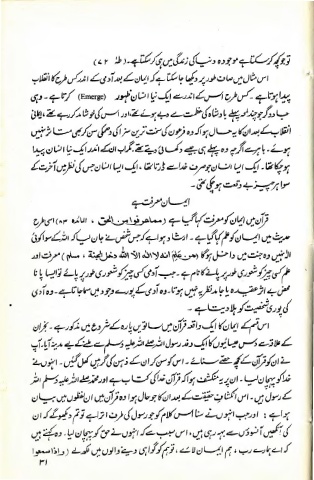 تو جو کچھ کر سکتا ہے موجودہ دنیا کی زندگی میں ہی کر سکتا ہے۔ (طٰہٰ ۷۲)
اس مثال میں صاف طور پر دیکھا جا سکتا ہے کہ ایمان کے بعد آدمی کے اندر کس طرح کا انقلاب
پیدا ہوتا ہے۔ کس طرح اس کے اندر سے ایک نیا انسان ظہور (Emerge) کرتا ہے۔ وہی
جادوگر جو چند لمحہ پہلے بادشاہ کی عظمت سے دبے ہوئے تھے اور اس کی خوشامد کر رہے تھے، ایمانی
انقلاب کے بعد ان کا یہ حال ہوا کہ وہ فرعون کی سخت ترین سزا کی دھمکی سن کر بھی متاثر نہیں
ہوئے۔ باہر سے اگرچہ وہ پہلے ہی جیسے دکھائی دیتے تھے مگر اب ان کے اندر ایک نیا انسان پیدا
ہو چکا تھا۔ ایک ایسا انسان جو صرف خدا سے ڈرتا تھا۔ ایک ایسا انسان جس کی نظر میں آخرت کے
سوا ہر چیز بے وقعت ہو چکی تھی۔
ایمان معرفت ہے
قرآن میں ایمان کو معرفت کہا گیا ہے (مما عرفوا من الحق ، المائدہ ۸۳) اسی طرح
حدیث میں ایمان کو علم کہا گیا ہے۔ ارشاد ہوا ہے کہ جس شخص نے جان لیا کہ اللہ کے سوا کوئی
الٰہ نہیں وہ جنت میں داخل ہوگا (من علم انه لا اله الا الله دخل الجنة ، مسلم) معرفت اور
علم کسی چیز کو شعوری طور پر پانے کا نام ہے۔ جب آدمی کسی چیز کو شعوری طور پر پائے تو ایسا پانا
محض بے اثر عقیدہ یا جامد نظریہ نہیں ہوتا۔ وہ آدمی کے پورے وجود میں سما جاتا ہے۔ وہ آدمی
کی پوری شخصیت کو ہلا دیتا ہے۔
اس قسم کے ایمان کا ایک واقعہ قرآن میں ساتویں پارہ کے شروع میں مذکور ہے۔ نجران
کے علاقہ سے دس عیسائیوں کا ایک وفد رسول اللہ صلی اللہ علیہ وسلم سے ملنے کے لیے مدینہ آیا۔ آپ
نے ان کو قرآن کے کچھ حصے سنائے۔ اس کو سن کر ان کے ذہن کی گرہیں کھل گئیں۔ انہوں نے
خدا کو پہچان لیا۔ ان پر یہ منکشف ہوا کہ قرآن خدا کی کتاب ہے اور محمد صلے اللہ علیہ وسلم اللہ
کے رسول ہیں۔ اس انکشاف حقیقت کے بعد ان کا جو حال ہوا وہ قرآن میں ان لفظوں میں بیان
ہوا ہے: اور جب انہوں نے سنا اس کلام کو جو رسول کی طرف اترا ہے تو تم دیکھو گے کہ ان
کی آنکھیں آنسوؤں سے بہہ رہی ہیں، اس سبب سے کہ انہوں نے حق کو پہچان لیا۔ وہ کہتے ہیں
کہ اے ہمارے رب، ہم ایمان لائے، تو ہم کو گواہی دینے والوں میں لکھ لے (واذا سمعوا
۳۱